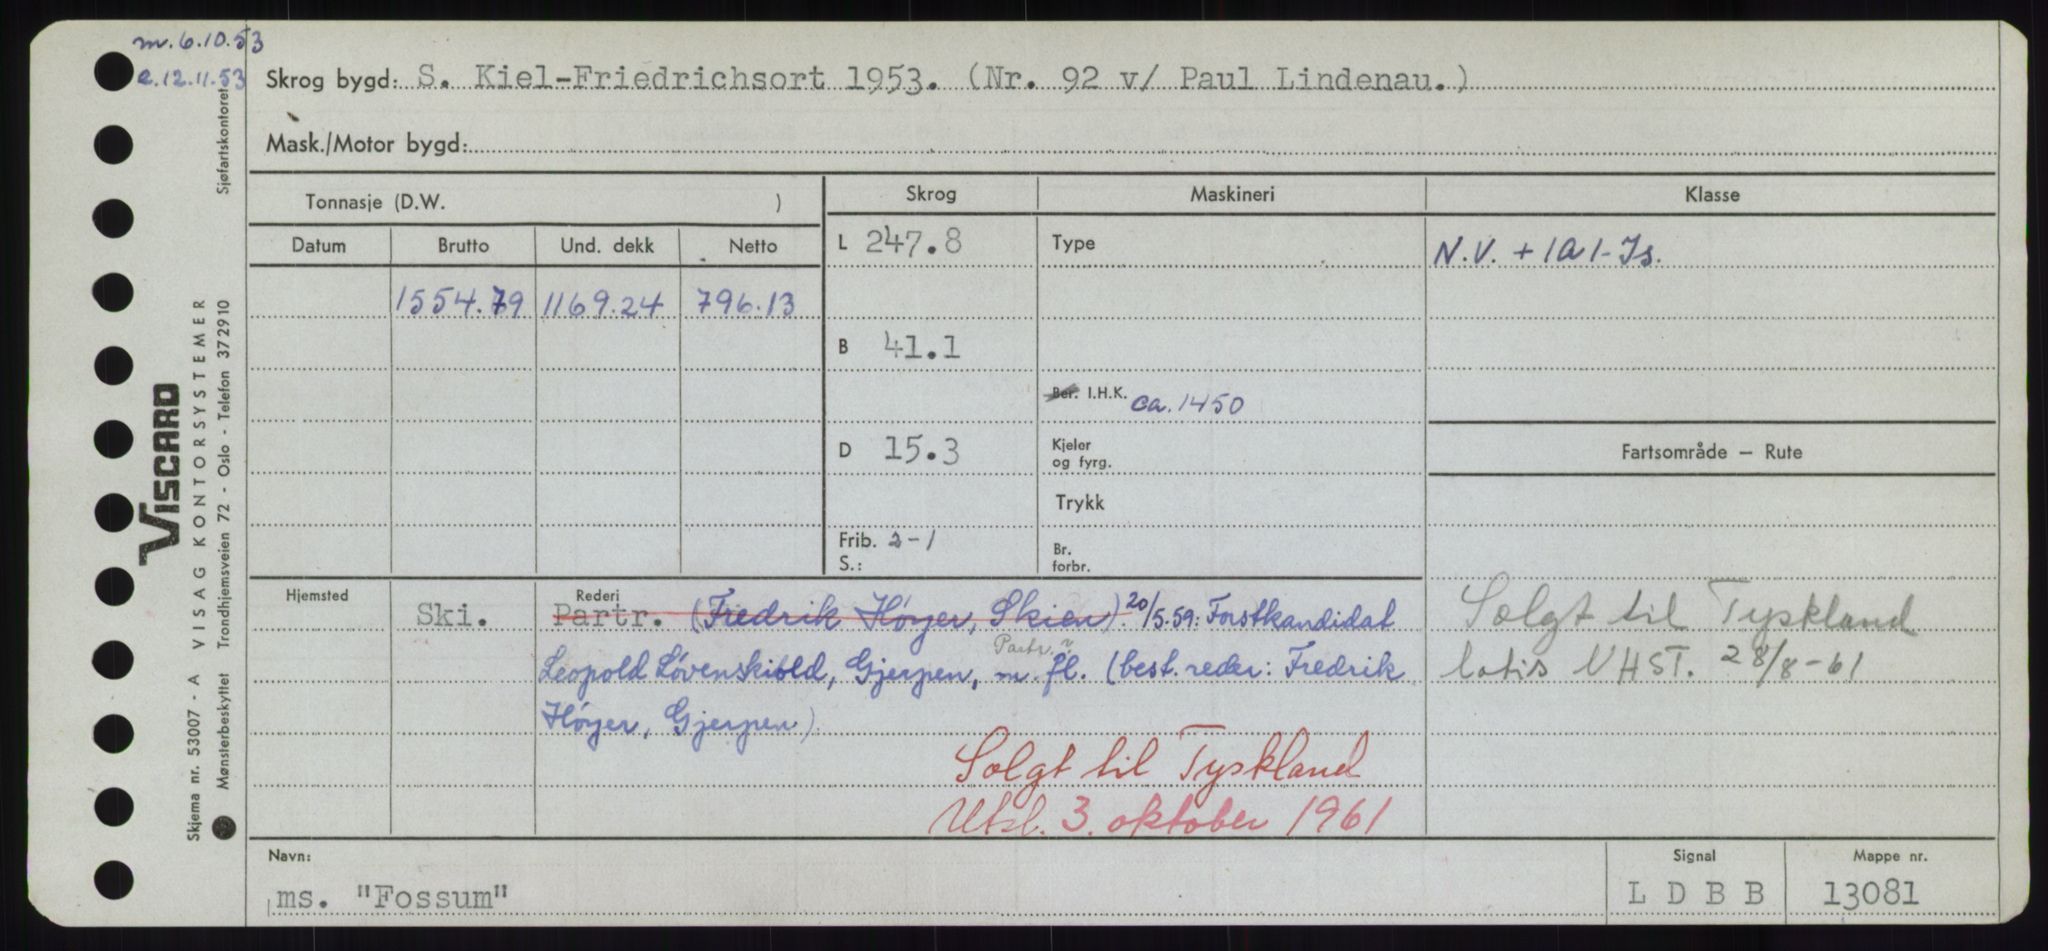 m. 6.10.53
e. 12.11.53
Sjøfartskontoret
Skrog bygd: S. Kiel-Friedrichsort 1953. (Nr. 92 v/ Paul Lindenau.)
Mask./Motor bygd:
Tonnasje (D.W. )
Skrog
Maskineri
Klasse
Datum Brutto Und. dekk Netto
L 247.8
Type
N.V. + 1A1-Is.
1554.79 1169.24 796.13
B 41.1
Ber. I.H.K. ca. 1450
D 15.3
Kjeler
og fyrg.
Fartsområde — Rute
Trykk
Frib. 2-1
S.:
Br.
forbr.
Hjemsted Ski.
Rederi
Partr. (Fredrik Høyer, Skien). 20/5.59: Forstkandidat
Partr.
Leopold Løvenskiold, Gjerpen, m. fl. (best. reder: Fredrik
Høyer, Gjerpen).
Solgt til Tyskland
Utsl. 3. oktober 1961
Solgt til Tyskland
NHST. 28/8-61
Navn:
ms. "Fossum"
Signal
L D B B
Mappe nr.
13081
VISCARD
Skjema nr. 53007 - A VISAG KONTORSYSTEMER
Mønsterbeskyttet Trondhjemsveien 72 - Oslo - Telefon 372910